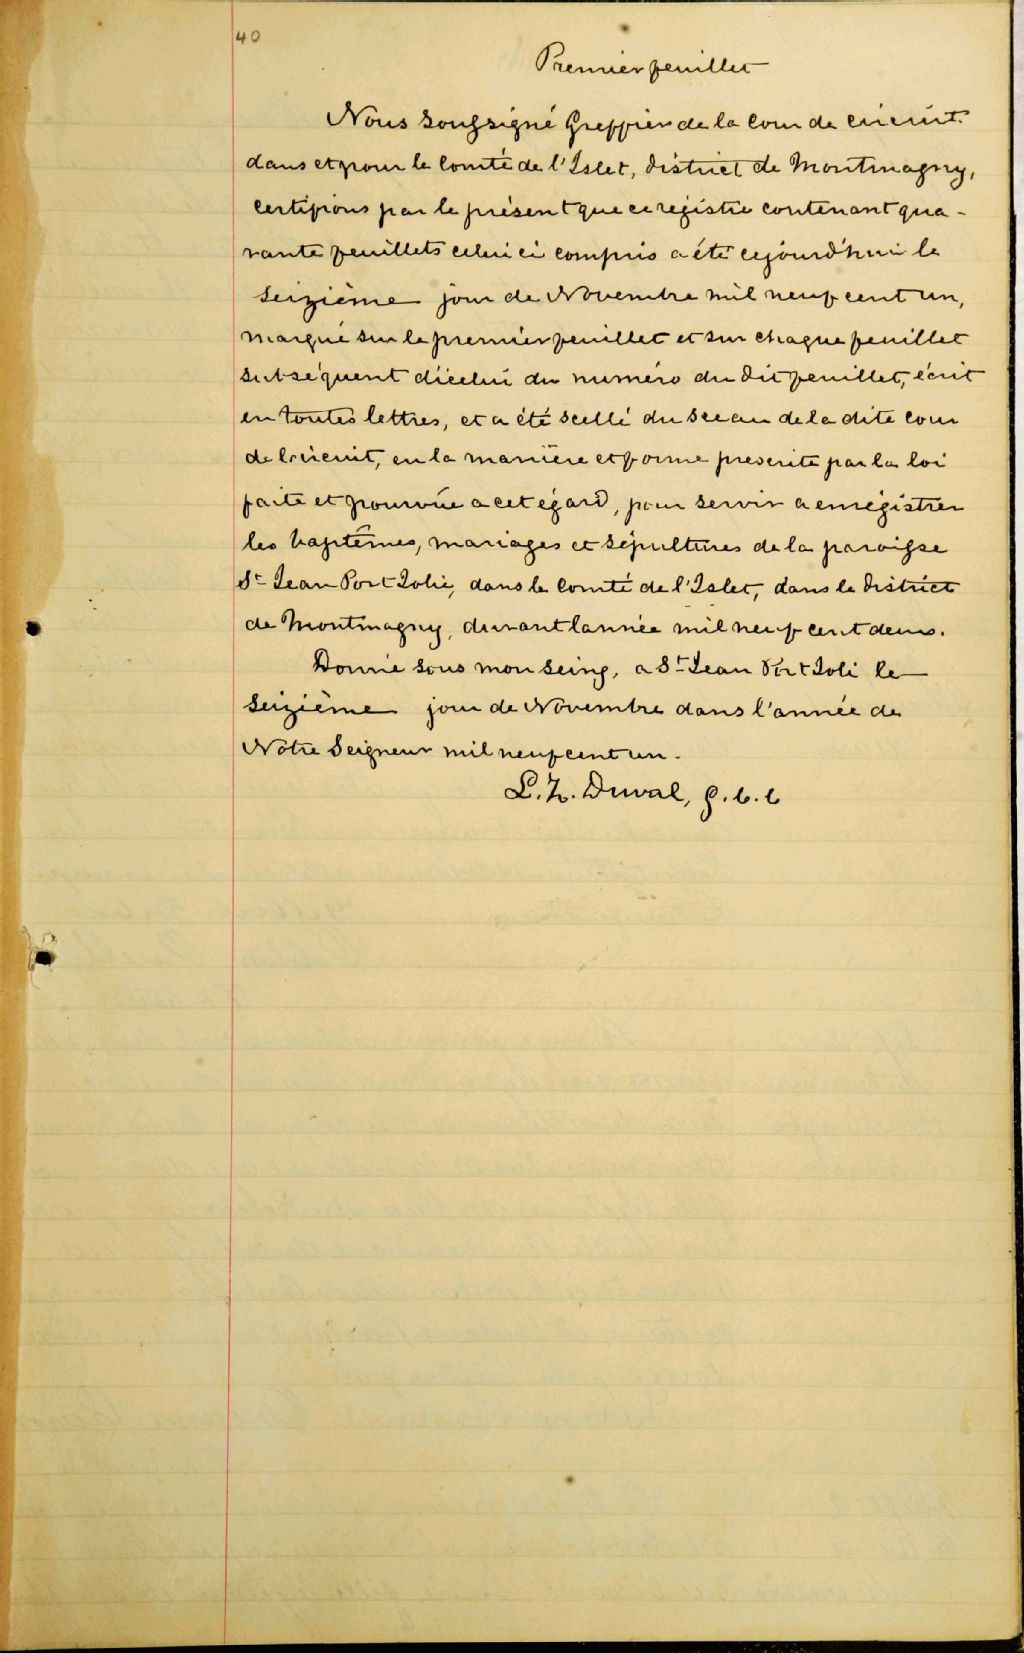 40
Premier feuillet
Nous soussigné Greffier de la Cour de circuit
dans et pour le Comté de l'Islet, district de Montmagny,
certifions par le présent que ce registre contenant qua-
rante feuillets celui ci compris a été cejourd'hui le
seizième jour de Novembre mil neuf cent un,
marqué sur le premier feuillet et sur chaque feuillet
subséquent d'icelui du numéro du dit feuillet, écrit
en toutes lettres, et a été scellé du sceau de la dite cour
de Circuit, en la manière et forme prescrite par la loi
faite et pourvue a cet égard, pour servir a enrégistrer
les baptêmes, mariages et sépultures de la paroisse
St Jean Port Joli, dans le Comté de l'Islet, dans le district
de Montmagny, durant lannée mil neuf cent deux.
Donné sous mon seing, a St Jean Port Joli le
seizième jour de Novembre dans l'année de
Notre Seigneur mil neuf cent un.
L. Z. Duval, g. c. c